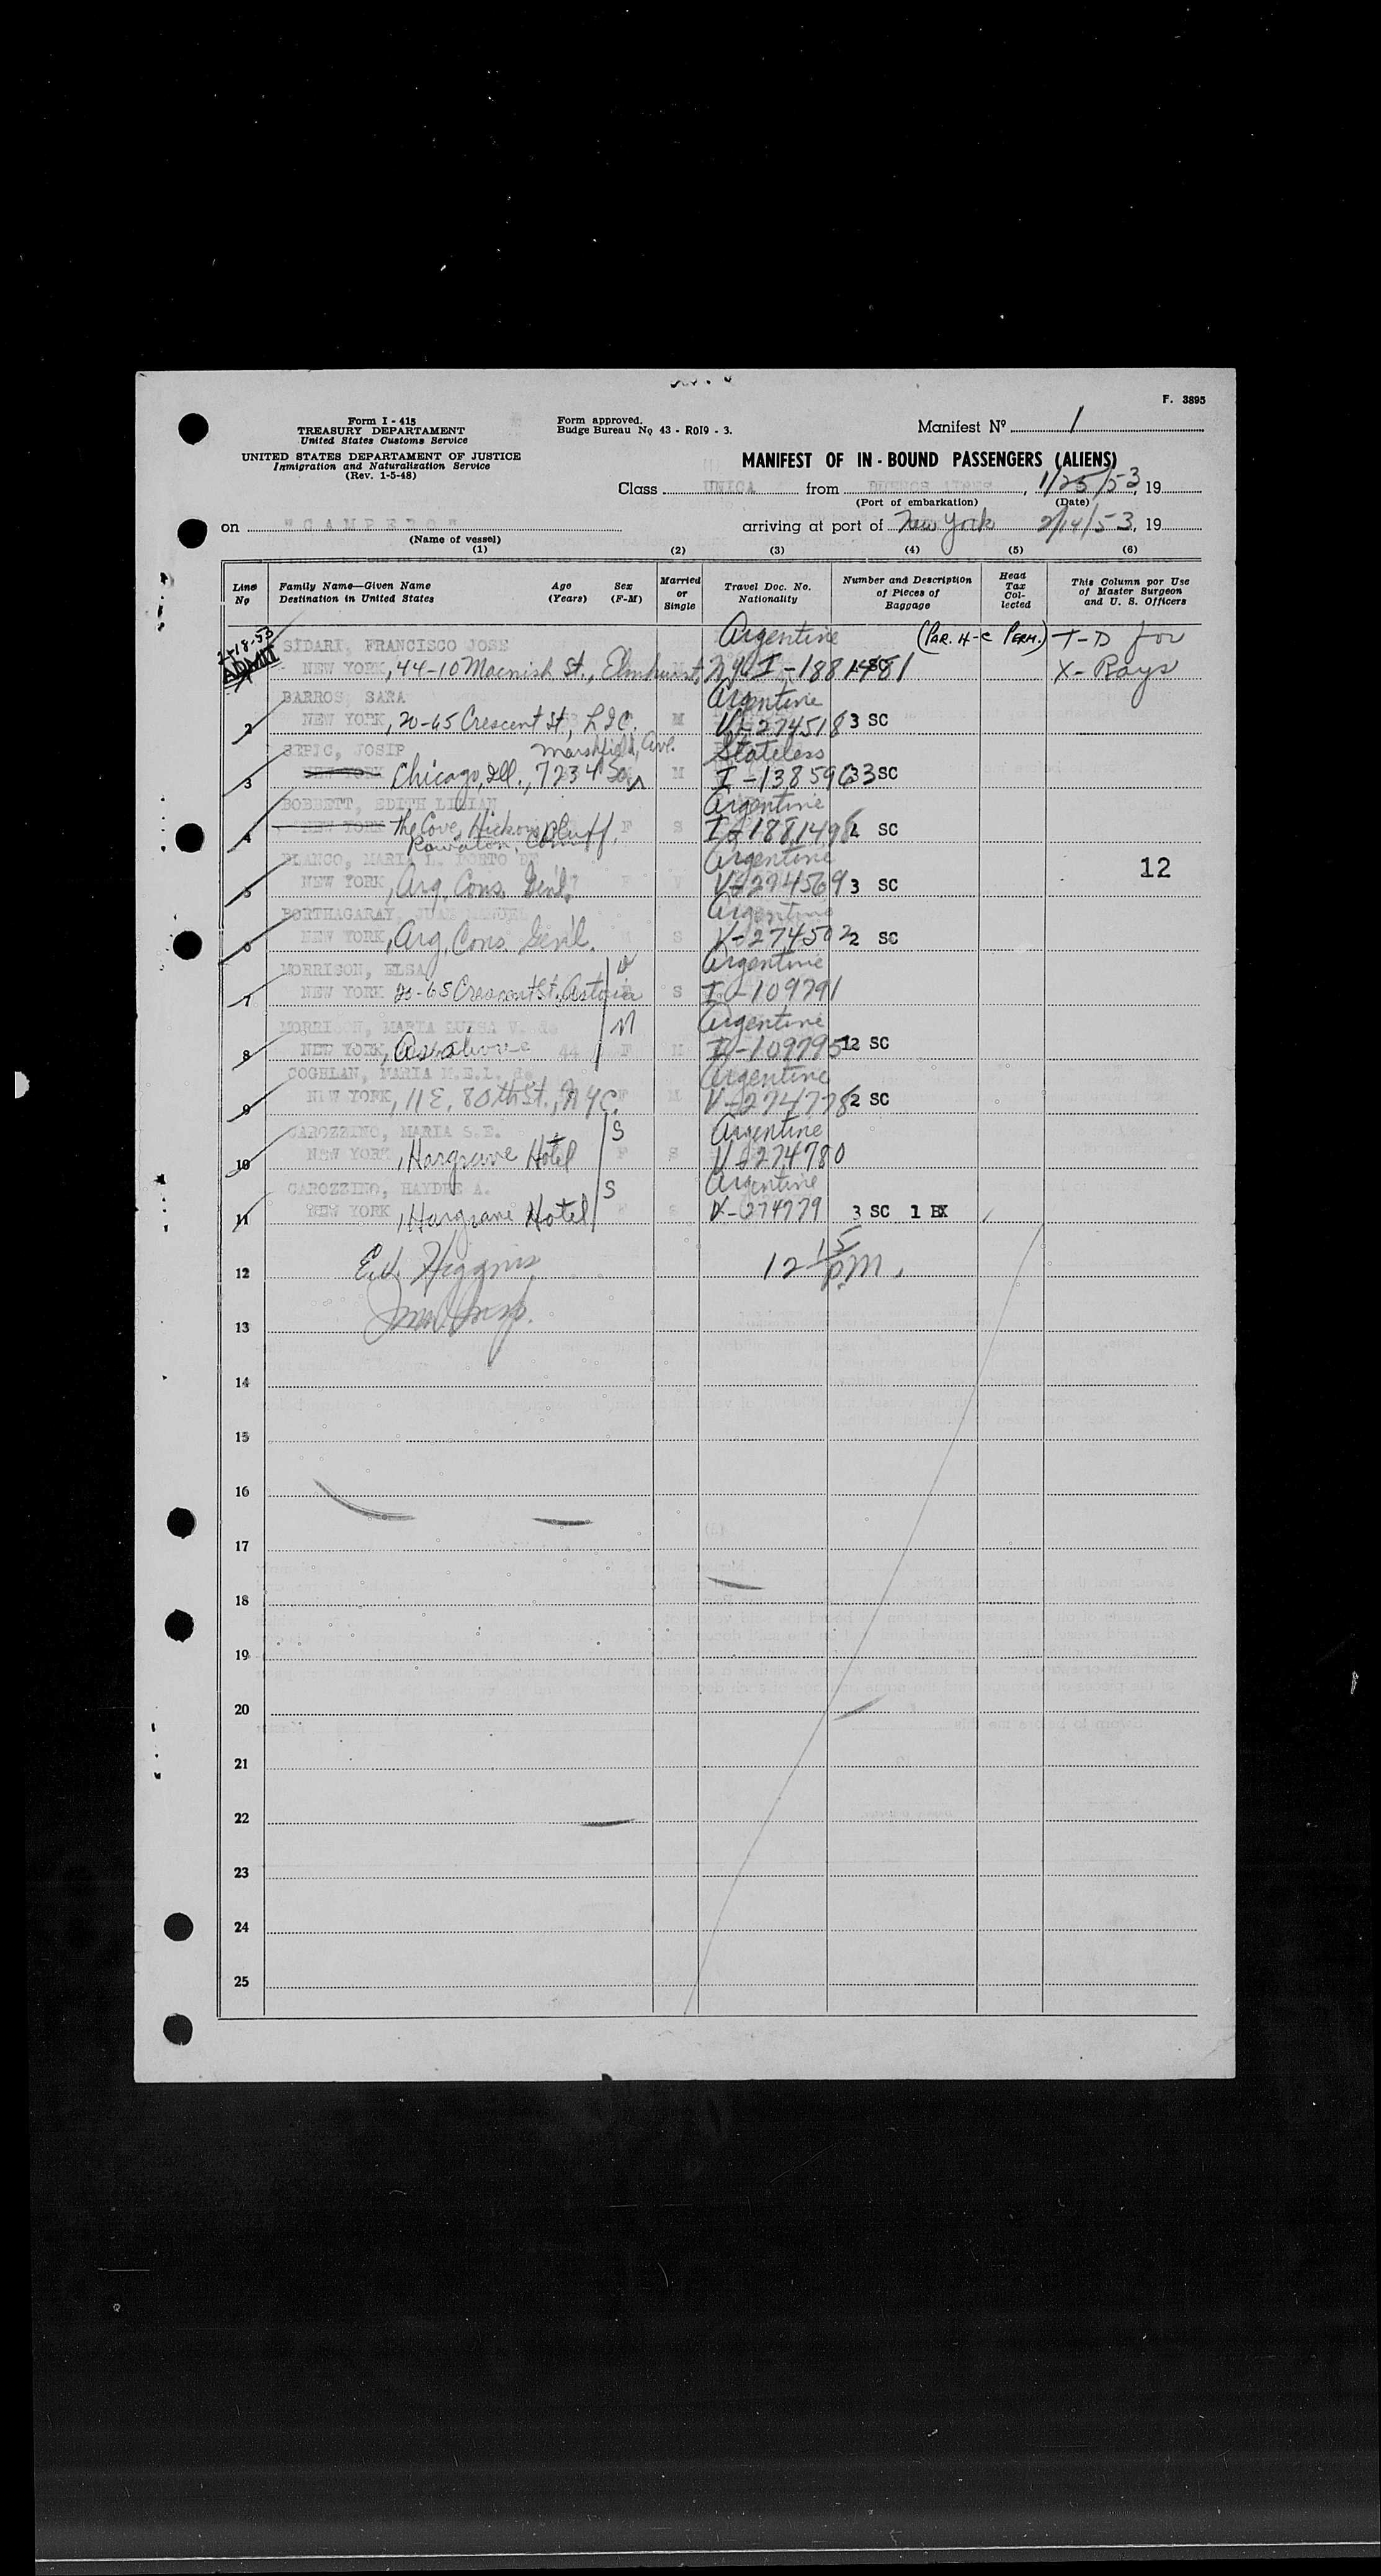 F. 3895
Form I - 415
TREASURY DEPARTAMENT
United States Customs Service
UNITED STATES DEPARTAMENT OF JUSTICE
Inmigration and Naturalization Service
(Rev. 1-5-48)
Form approved.
Budge Bureau No 43 - R019 - 3.
Manifest Nº 1
MANIFEST OF IN - BOUND PASSENGERS (ALIENS)
Class UNICA from BUENOS AIRES, 1/25/53, 19
(Port of embarkation) (Date)
on "CAMPERO" arriving at port of New York 2/14/53, 19
(Name of vessel)
(1) (2) (3) (4) (5) (6)
Line No
Family Name—Given Name Age Sex
Destination in United States (Years) (F-M)
Married or Single
Travel Doc. No. Nationality
Number and Description of Pieces of Baggage
Head Tax Collected
This Column por Use of Master Surgeon and U. S. Officers
2-18-53 SIDARI, FRANCISCO JOSE Argentine (PAR. H-C PERM.) T-D for
ADMIT NEW YORK, 44-10 Macnish St., Elmhurst, NY I-1881481 SC X-Rays
BARROS, SARA Argentine
2 NEW YORK, 20-65 Crescent St, LIC. M V-274518 3 SC
SEPIC, JOSIP Marshfield, Ave. Stateless
3 NEW YORK Chicago, Ill., 7234 So. M I-1385963 3 SC
BOBBETT, EDITH LILIAN Argentine
4 NEW YORK The Cove, Hickory Bluff, F S I-1881498 4 SC
Rowaton, Conn
BLANCO, MARIA L. PORTO DE Argentine 12
5 NEW YORK, Arg. Cons. Gen'l. F V V-274569 3 SC
PORTHAGARAY, JUAN MANUEL Argentine
6 NEW YORK, Arg. Cons. Gen'l. S V-274502 2 SC
MORRISON, ELSA D Argentine
7 NEW YORK 20-65 Crescent St. Astoria S I-109791
MORRISON, MARIA LUISA V. de M Argentine
8 NEW YORK, As above 44 F M I-109795 12 SC
COGHLAN, MARIA M.E.L. de Argentine
9 NEW YORK, 11 E. 80th St., NYC. F M V-274778 2 SC
CAROZZINO, MARIA S.E. S Argentine
10 NEW YORK, Hargrave Hotel F S V-274780
CAROZZINO, HAYDEE A. S Argentine
11 NEW YORK, Hargrave Hotel F S V-274779 3 SC 1 BX
12 E.J. Higgins 12 15 PM.
13 Imm. Insp.
14
15
16
17
18
19
20
21
22
23
24
25